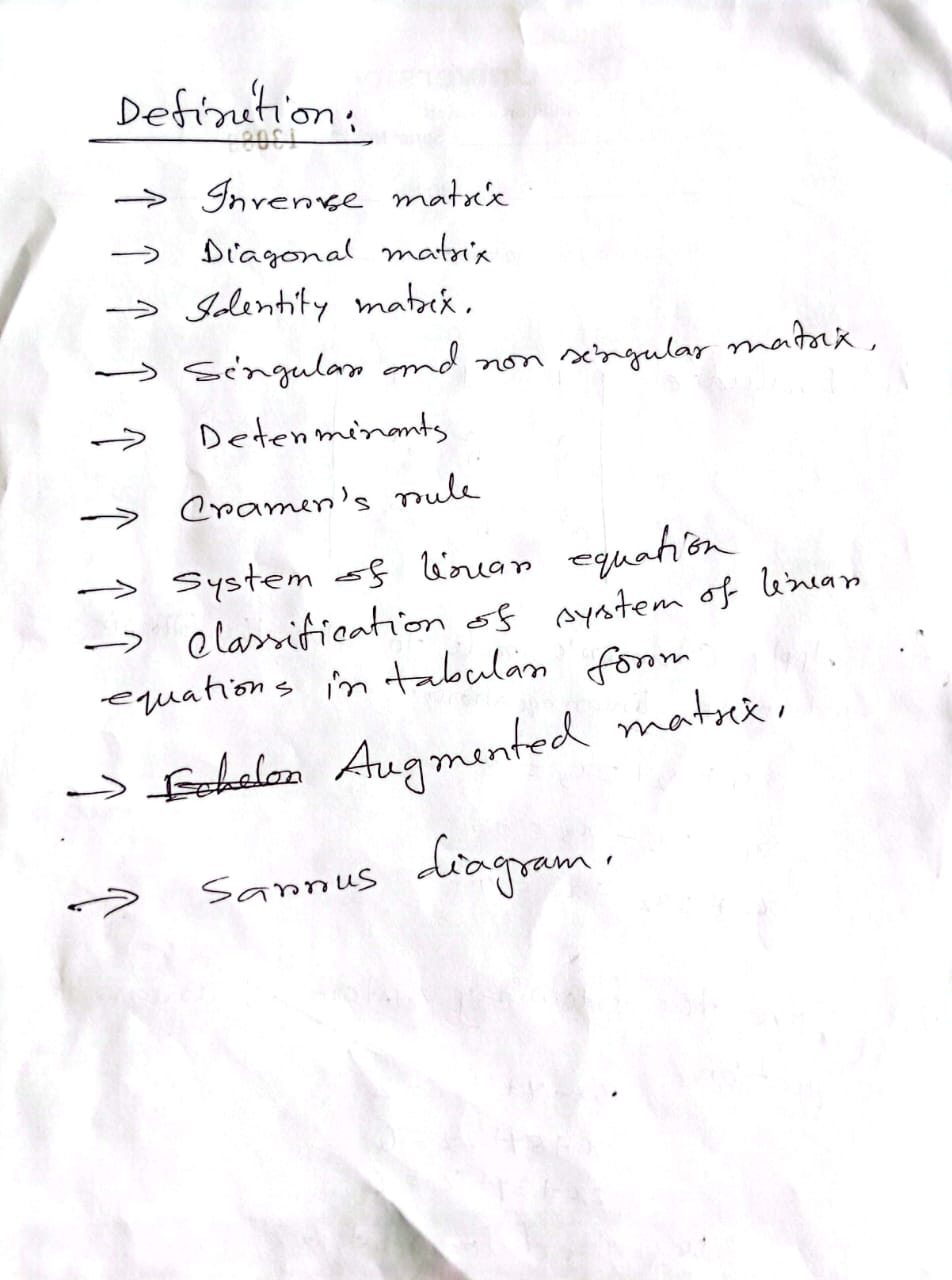 Definition:
→ Inverse matrix
→ Diagonal matrix
→ Identity matrix.
→ Singular and non singular matrix,
→ Determinants
→ Cramer's rule
→ System of linear equation
→ Classification of system of linear
equations in tabular form
→ Echelon Augmented matrix,
→ Sarrus diagram.